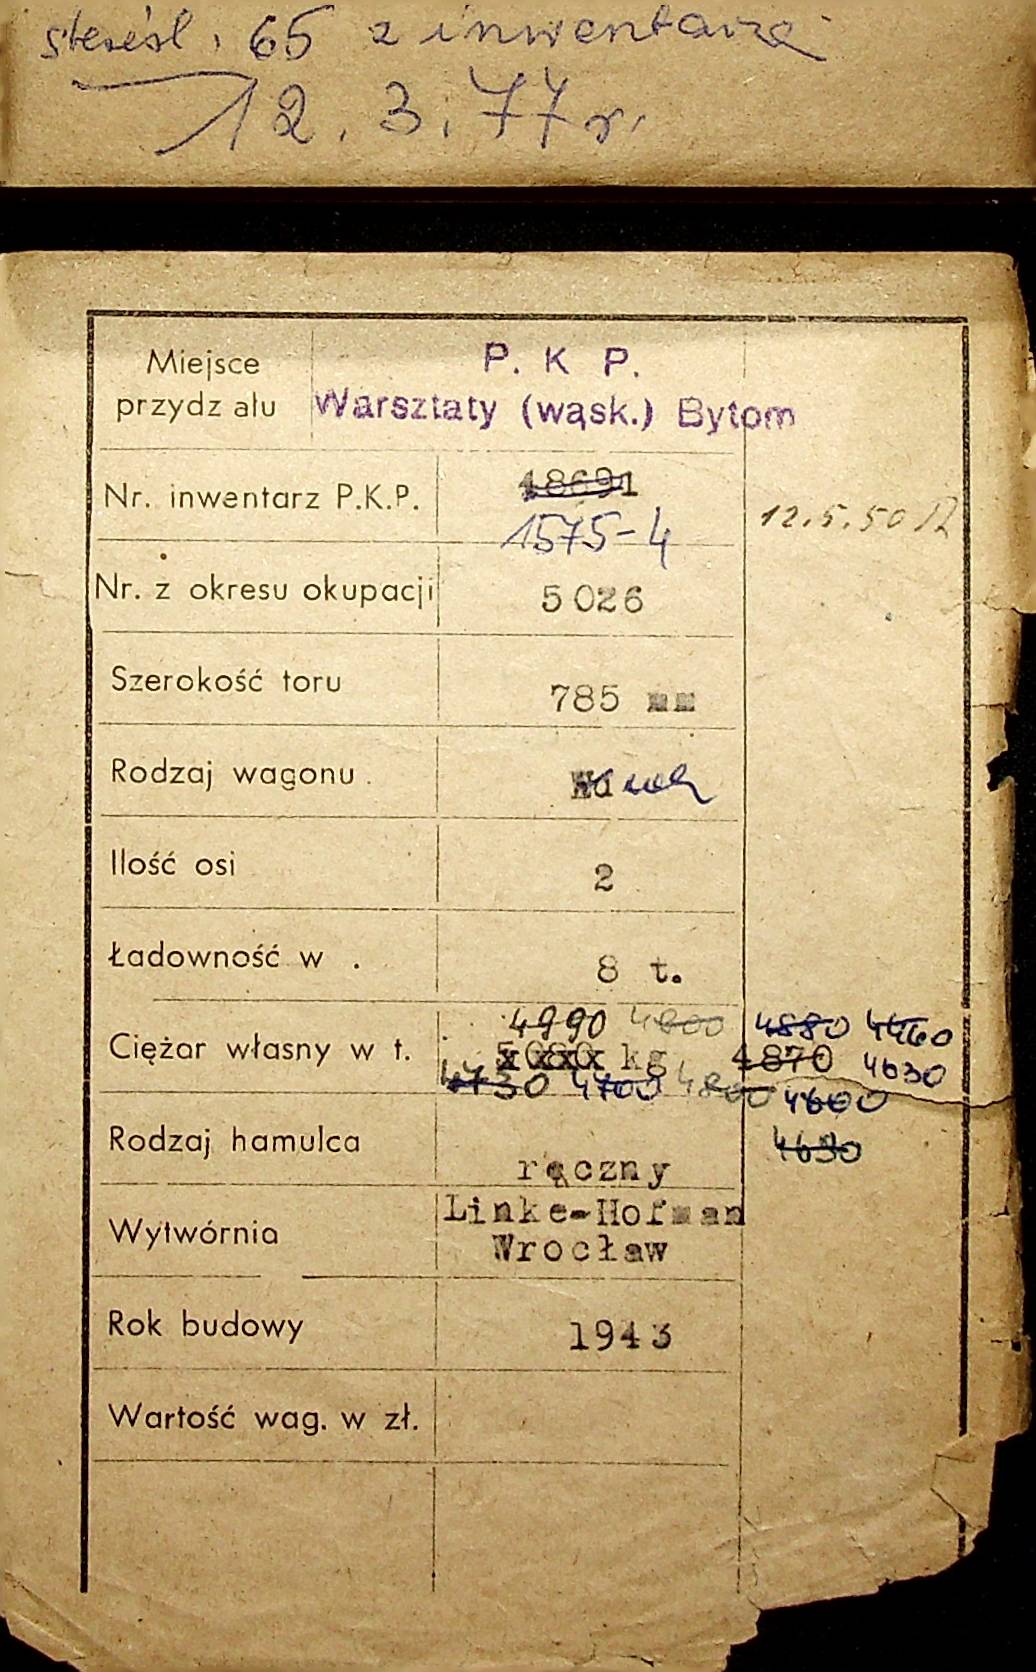 65 z inwentarza
12.3.77 r.
Miejsce P. K P.
przydz ału Warsztaty (wąsk.) Bytom
Nr. inwentarz P.K.P. 48691
1575-4 12.5.50
Nr. z okresu okupacji 5026
Szerokość toru 785 mm
Rodzaj wagonu
Ilość osi 2
Ładowność w . 8 t.
4990 4800 4880 4460
Ciężar własny w t. 5080 kg 4870 4630
4730 4700 4800 4600
4630
Rodzaj hamulca ręczny
Wytwórnia Linke-Hofman
Wrocław
Rok budowy 1943
Wartość wag. w zł.